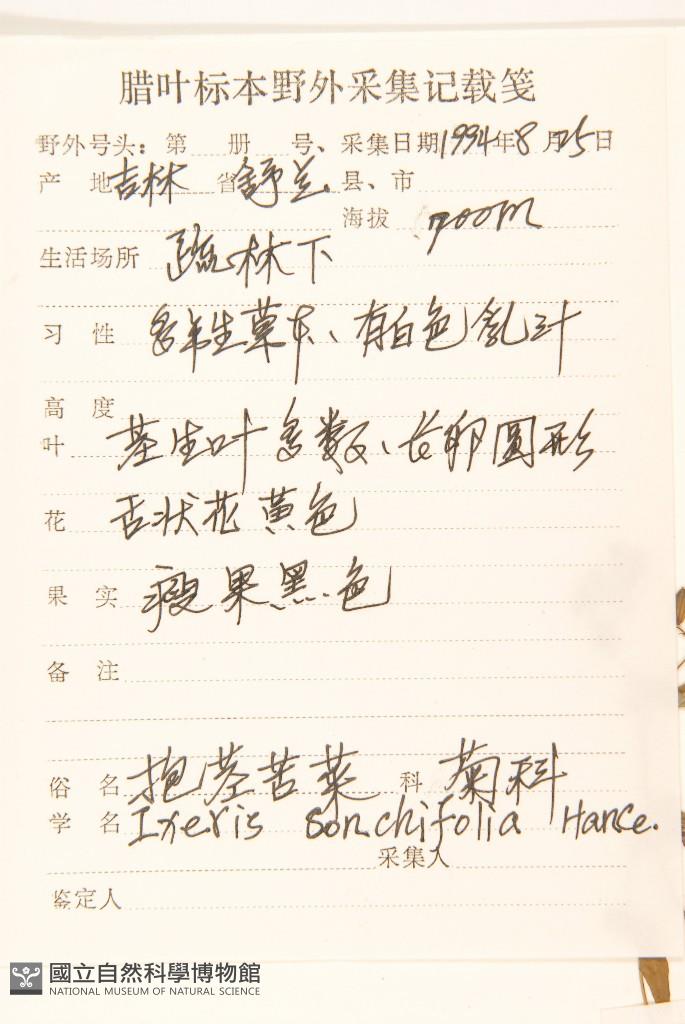 腊叶标本野外采集记载笺
野外号头：第 册 号、采集日期1994年8月25日
产 地吉林省舒兰县、市
海拔 700m
生活场所 疏林下
习 性 多年生草本、有白色乳汁
高 度
叶 基生叶多数、长卵圆形
花 舌状花黄色
果 实 瘦果黑色
备 注
俗 名 抱茎苦菜 科 菊科
学 名 Ixeris sonchifolia Hance.
采集人
鉴定人
國立自然科學博物館
NATIONAL MUSEUM OF NATURAL SCIENCE